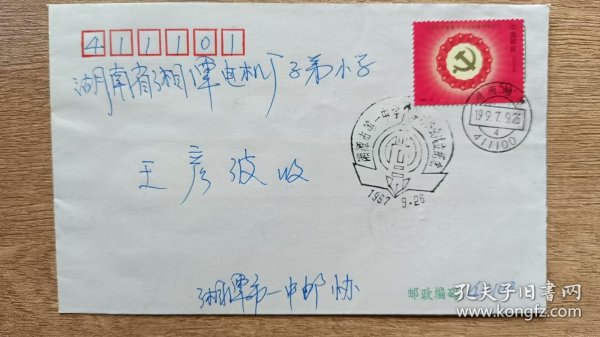 411101
湖南省湘潭电机厂子弟小学
王彦波 收
湘潭市一中邮协
中国邮政
湘潭市第一中学
1997 9-26
1997.9.26
4
411100
邮政编码
孔夫子旧书网
www.kongfz.com